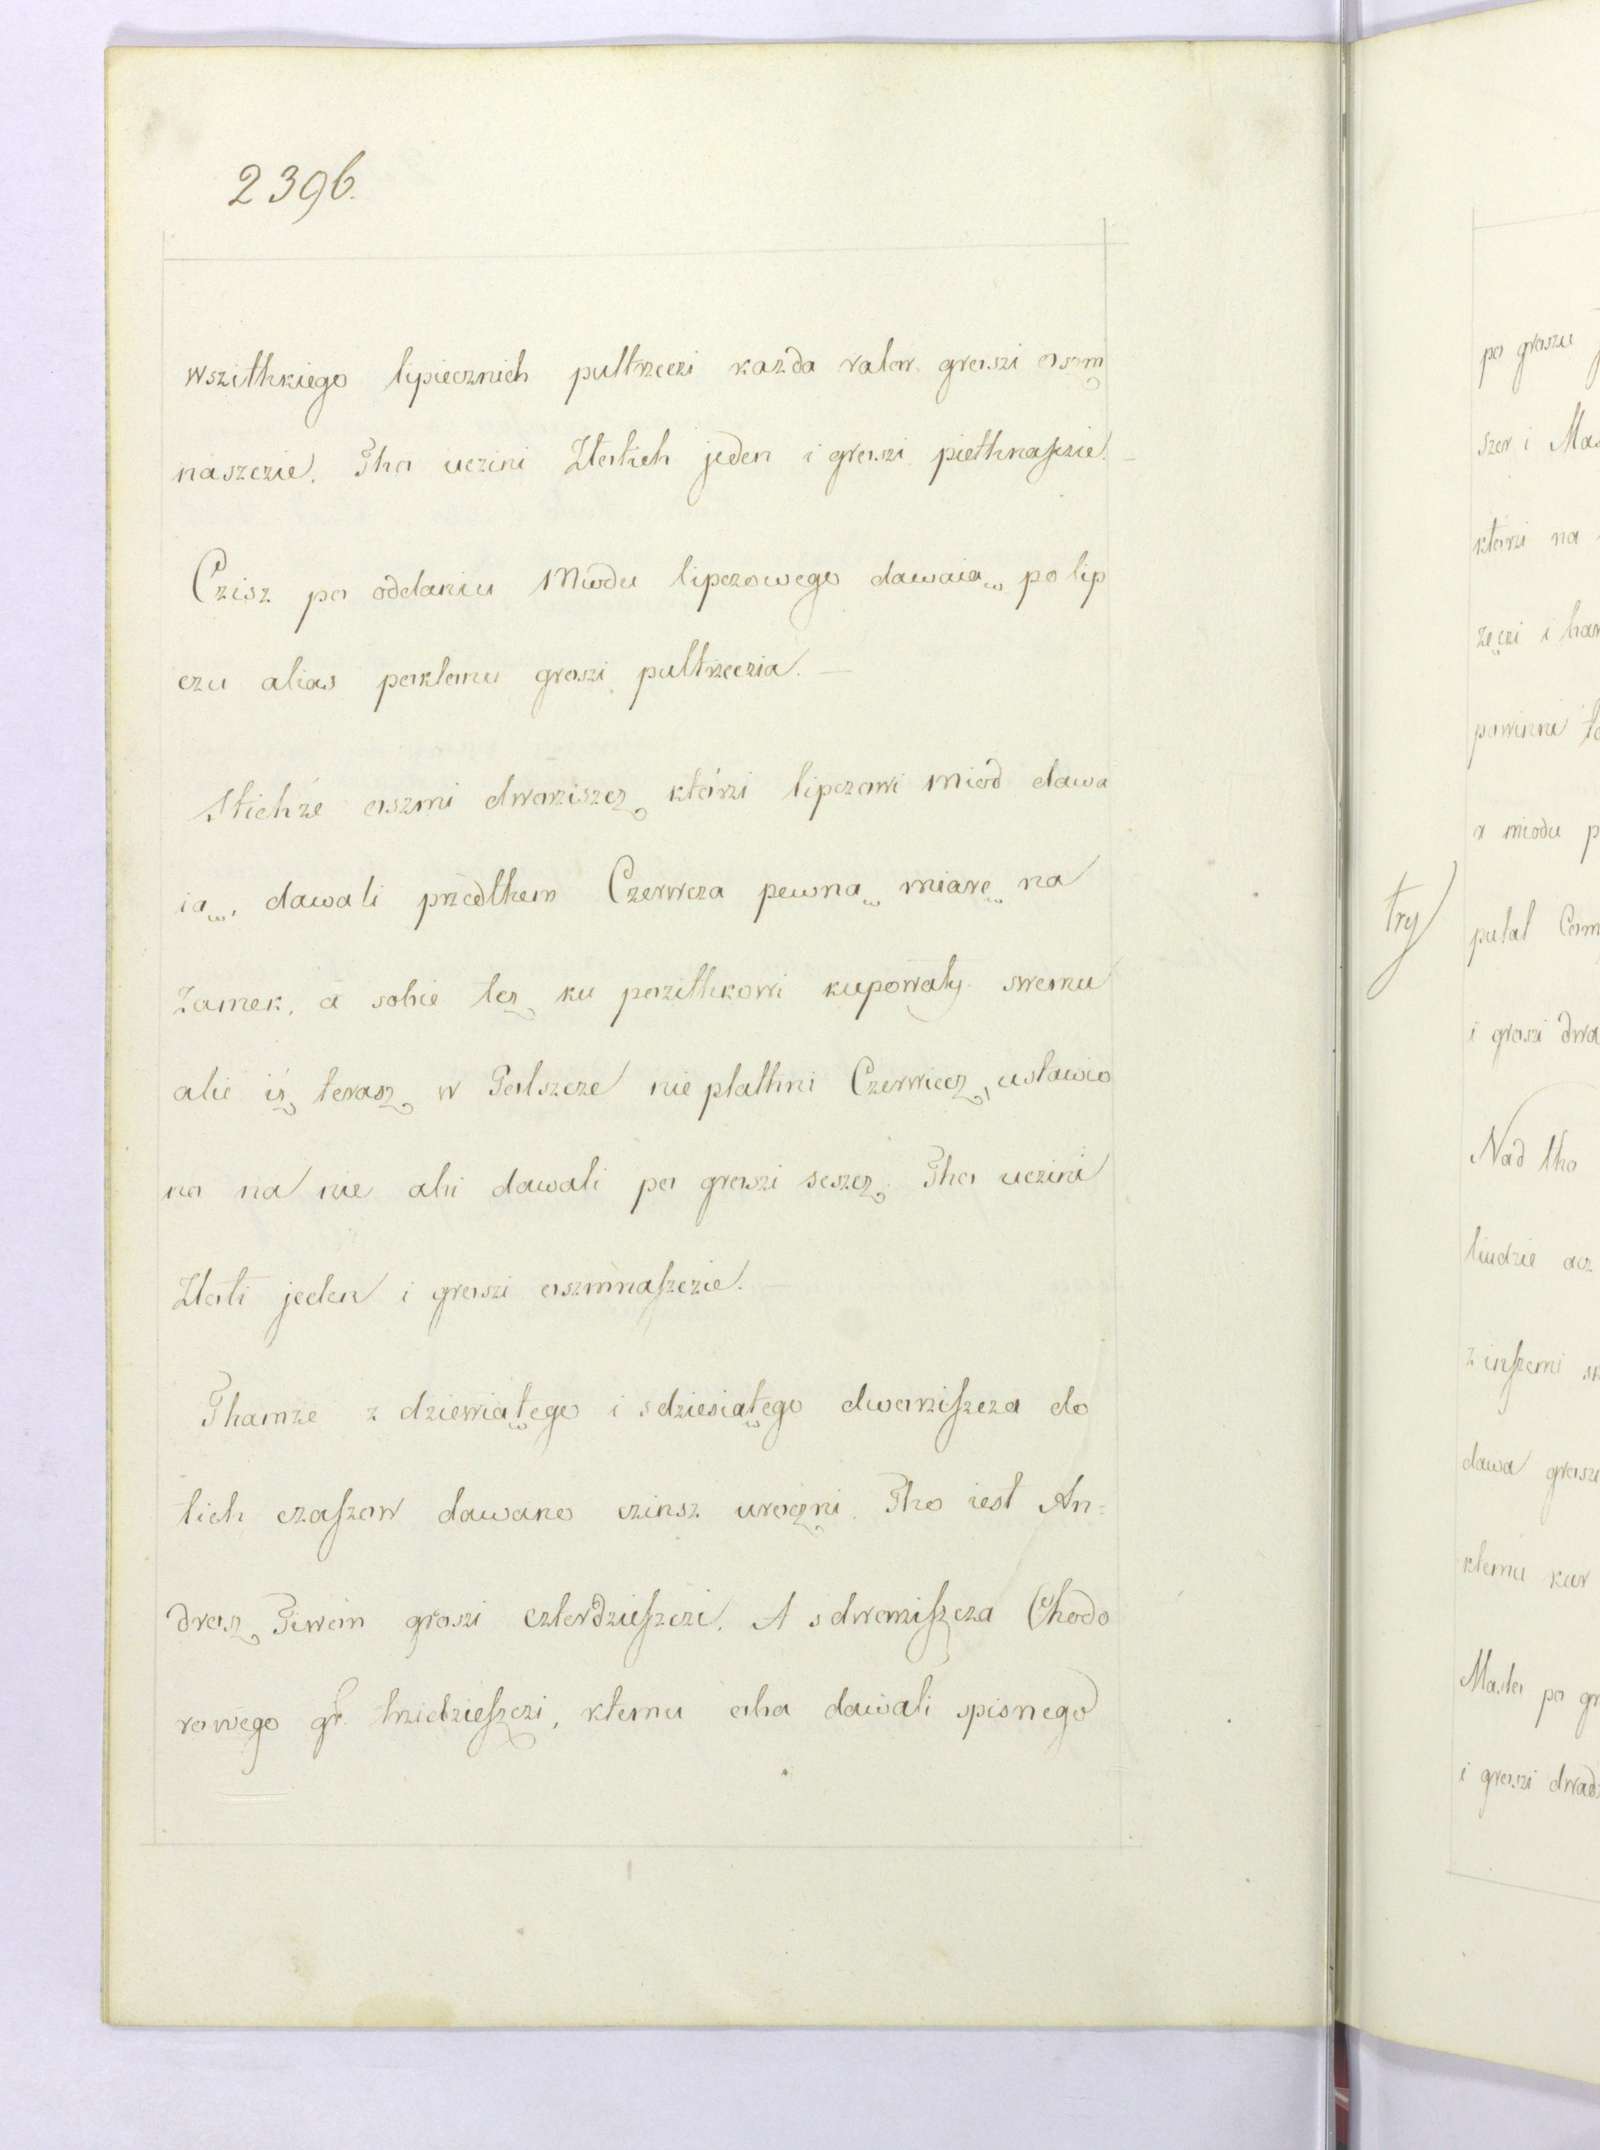 2396.
wszithkiego lipiecznich pultrzeczi kazda valor groszi oszm
naszczie. Tho uczini Złotich jeden i groszi piethnaszczie.
Czisz po oddaniu Miodu lipczowego dawaia po lip
czu alias poklonu groszi pultrzeczia.
Stichże oszmi dworziszcz którzi lipczowi miód dawa
ia, dawali przedthem Czerwcza pewna miare na
Zamek, a sobie tez ku pozithkowi kupowały swemu
alie iz terasz w Polszcze nie płathni Czerwiecz, ustawio
no na nie abi dawali po groszi seszcz. Tho uczini
Złoti jeden i groszi oszmnaszczie.
Thamże z dziewiątego i sdziesiątego dworziszcza do
tich czaszow dawano czinsz uroczni. Tho iest An=
drosz Piwoin groszi czterdzieszczi. A sdworziszcza Chodo
rowego gr. trzidzieszczi, ktemu oba dawali spisnego
po groszu
szor i
którzi na
powinni
a miodu
try
i groszi
Nad tho
liudzie acz
z inszemi
dawa groszi
ktemu kur
i groszi